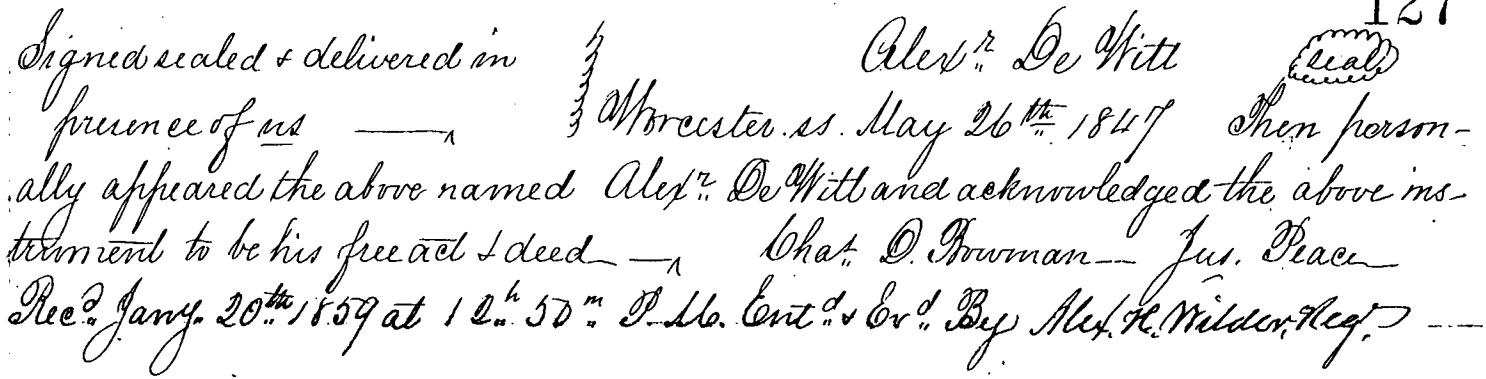 127
Signed sealed & delivered in Alexr. De Witt seal
presence of us — Worcester. ss. May 26th 1847 Then person-
ally appeared the above named Alexr. De Witt and acknowledged the above ins-
trument to be his free act & deed — Chas. D. Bowman — Jus. Peace
Recd. Jany. 20th 1859 at 12h. 50m. P. M. Entd. & Exd. By Alex. H. Wilder, Regr.